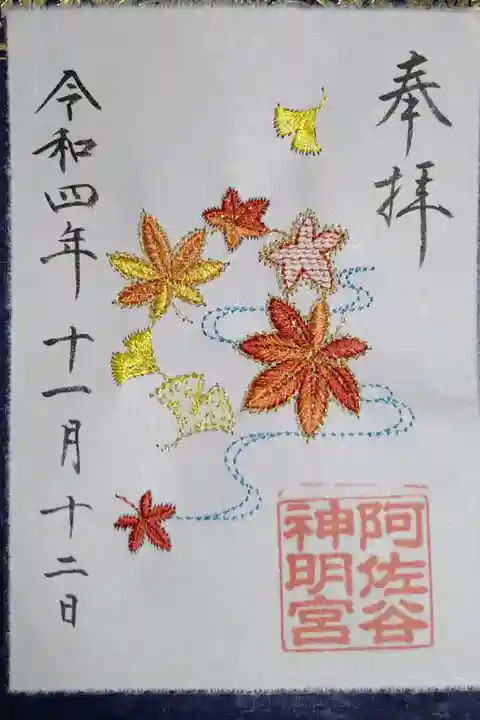 奉拝
阿佐谷
神明宮
令和四年十一月十二日